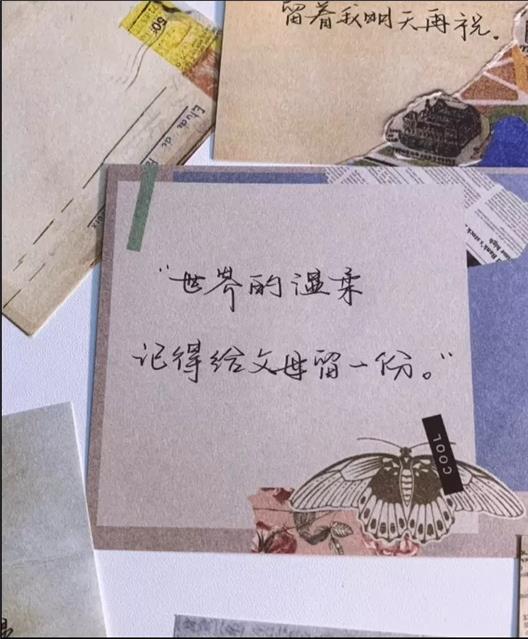 留着我明天再说。
50
Etude de
"世界的温柔
记得给父母留一份。"
COOL